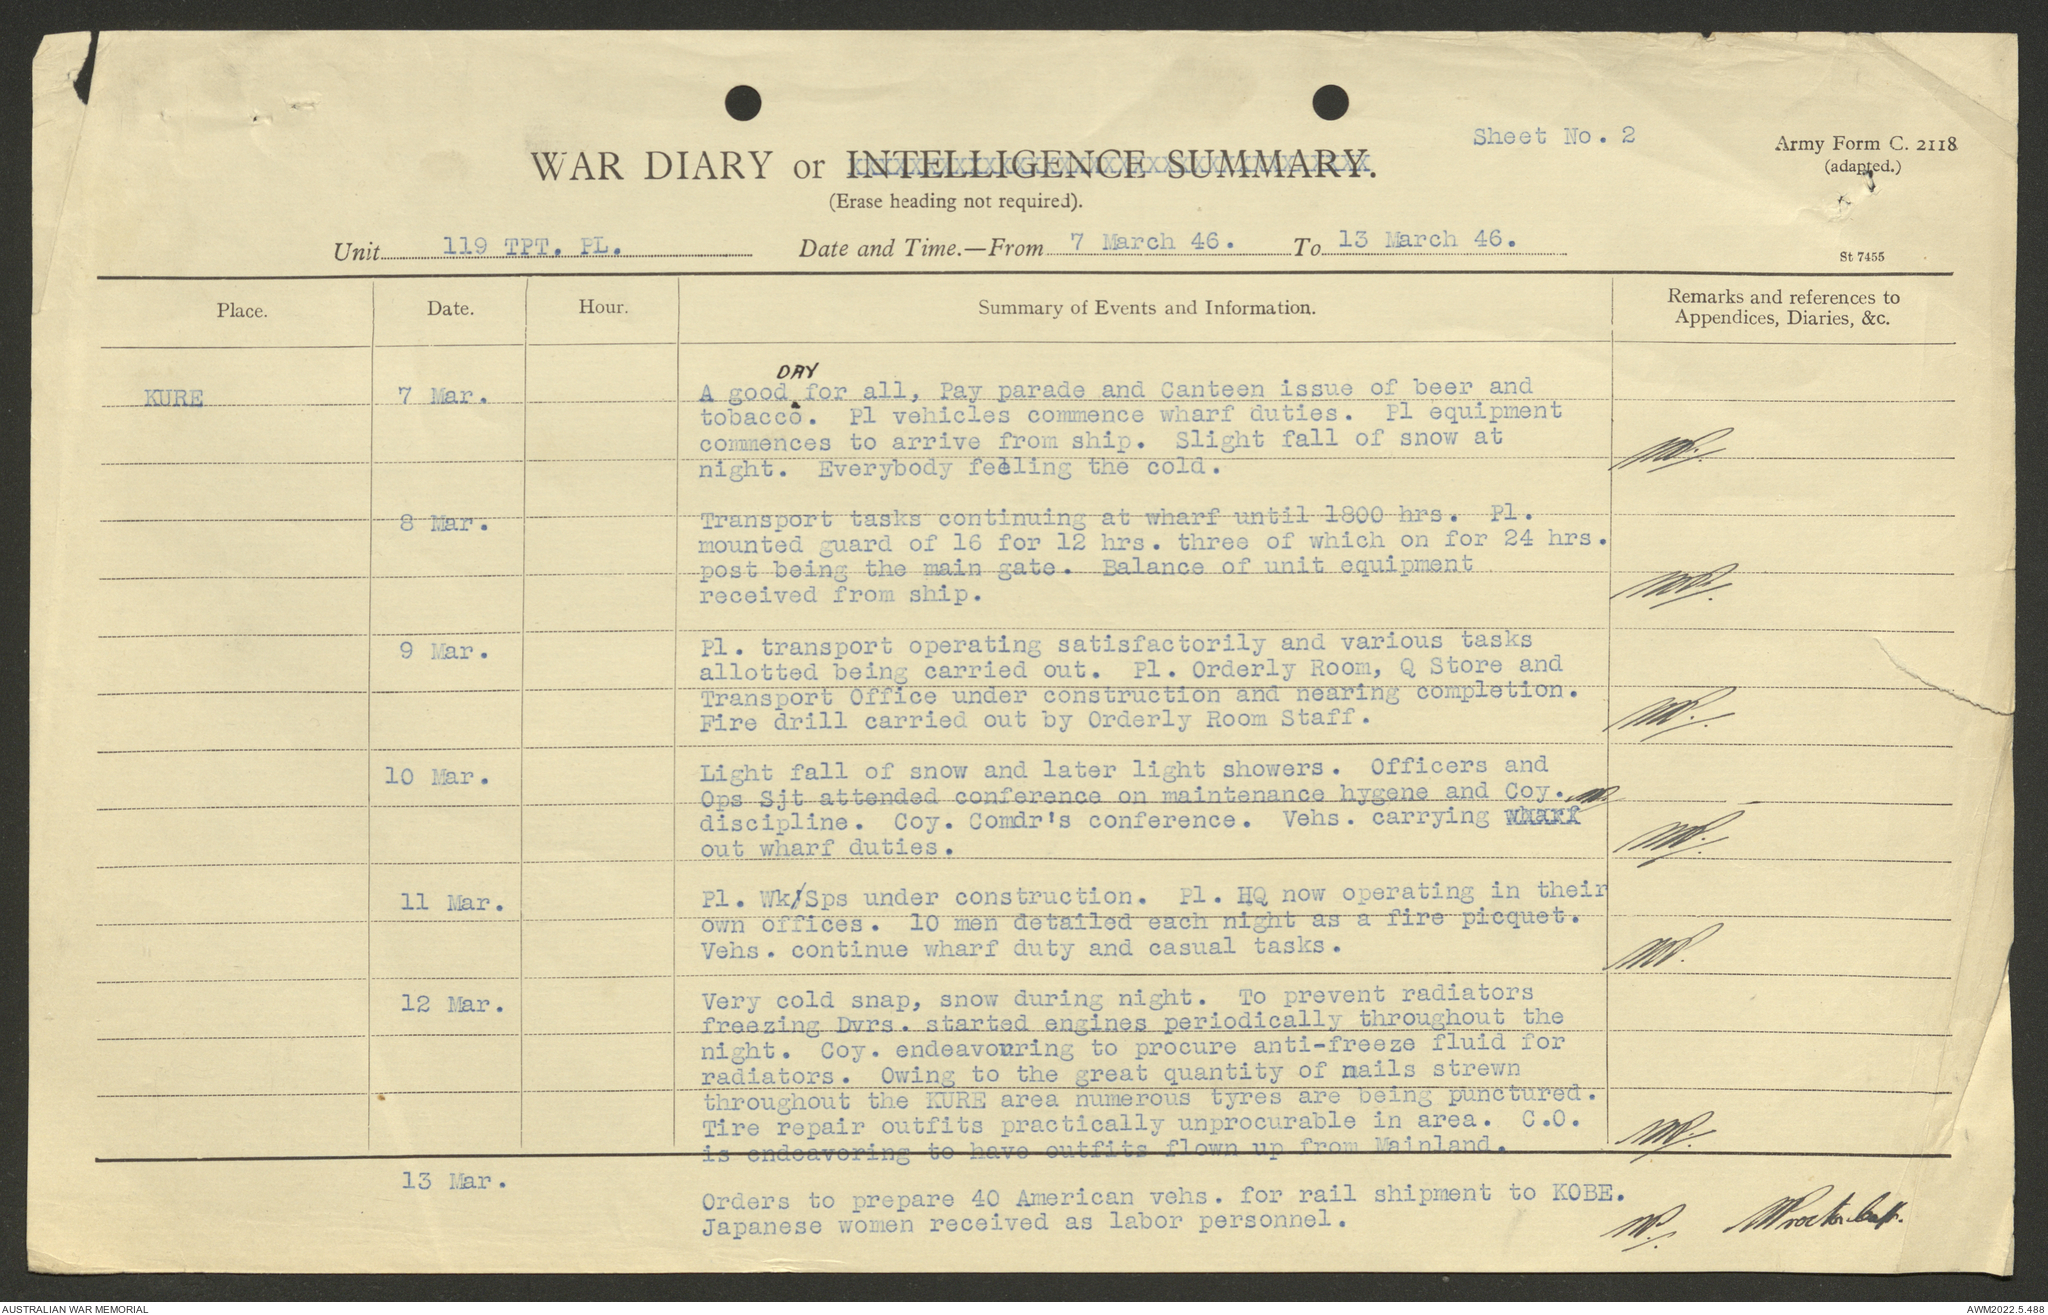 Sheet No. 2
Army Form C. 2118
(adapted.)
WAR DIARY or INTELLIGENCE SUMMARY.
(Erase heading not required).
Unit 119 TPT. PL. Date and Time.—From 7 March 46. To 13 March 46.
St 7455
Place. Date. Hour. Summary of Events and Information. Remarks and references to
Appendices, Diaries, &c.
DAY
KURE 7 Mar. A good for all, Pay parade and Canteen issue of beer and
tobacco. Pl vehicles commence wharf duties. Pl equipment
commences to arrive from ship. Slight fall of snow at
night. Everybody feeling the cold.
8 Mar. Transport tasks continuing at wharf until 1800 hrs. Pl.
mounted guard of 16 for 12 hrs. three of which on for 24 hrs.
post being the main gate. Balance of unit equipment
received from ship.
9 Mar. Pl. transport operating satisfactorily and various tasks
allotted being carried out. Pl. Orderly Room, Q Store and
Transport Office under construction and nearing completion.
Fire drill carried out by Orderly Room Staff.
10 Mar. Light fall of snow and later light showers. Officers and
Ops Sjt attended conference on maintenance hygene and Coy.
discipline. Coy. Comdr's conference. Vehs. carrying wharf
out wharf duties.
11 Mar. Pl. Wk/Sps under construction. Pl. HQ now operating in their
own offices. 10 men detailed each night as a fire picquet.
Vehs. continue wharf duty and casual tasks.
12 Mar. Very cold snap, snow during night. To prevent radiators
freezing Dvrs. started engines periodically throughout the
night. Coy. endeavouring to procure anti-freeze fluid for
radiators. Owing to the great quantity of nails strewn
throughout the KURE area numerous tyres are being punctured.
Tire repair outfits practically unprocurable in area. C.O.
is endeavoring to have outfits flown up from Mainland.
13 Mar.
Orders to prepare 40 American vehs. for rail shipment to KOBE.
Japanese women received as labor personnel.
AUSTRALIAN WAR MEMORIAL
AWM2022.5.488